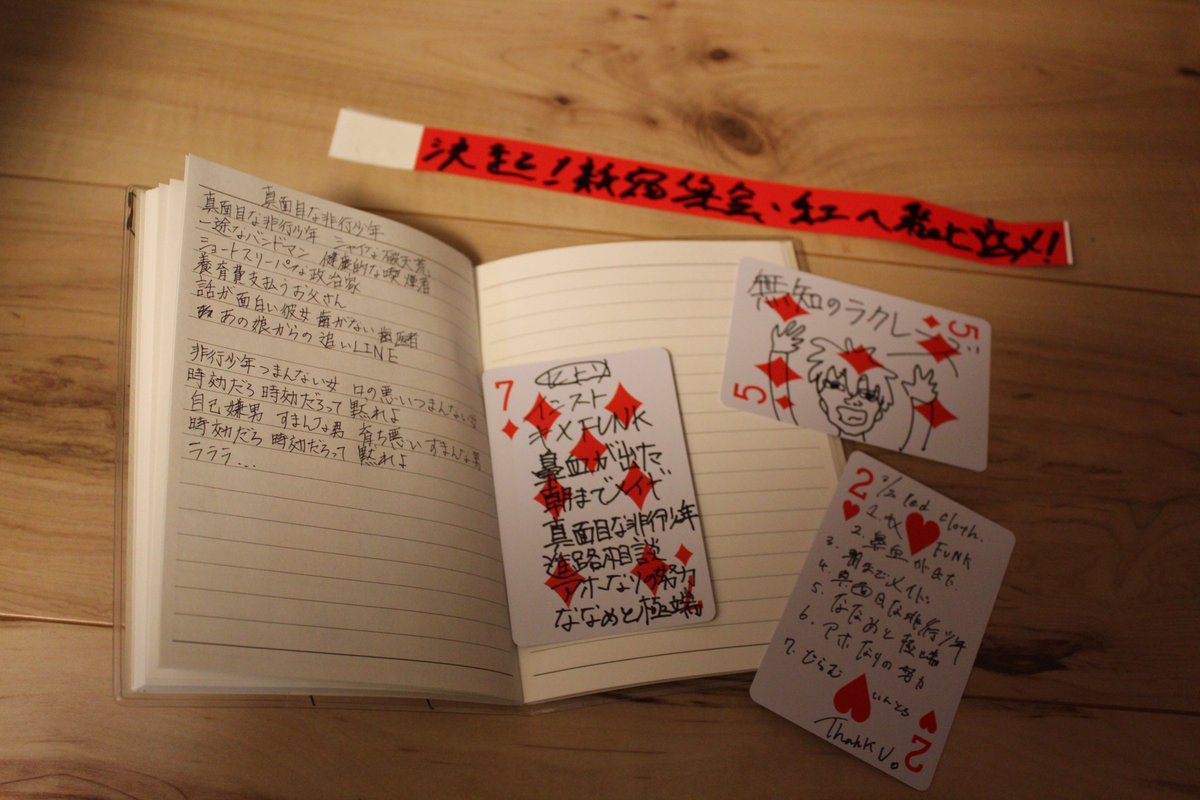 真面目な非行少年
真面目な非行少年 シャイな破天荒
一途なバンドマン 健康的な喫煙者
ショートスリーパーな政治家
養育費支払うお父さん
話が面白い彼女 歯がない歯医者
あの娘からの追いLINE
非行少年つまんない女 口の悪いつまんない女
時効だろ 時効だろって 黙れよ
自己嫌男 すまんな男 育ち悪いすまんな男
時効だろ 時効だろって 黙れよ
ラララ…
決起!
紅へ
7
セトリ
インスト
キメFUNK
鼻血が出た
朝までメイド
真面目な非行少年
進路相談
アホなりの努力
ななめと極端
5
無知のラクレ
5
2
2/2 Red Cloth.
1. キメFUNK
2. 鼻血が出た
3. 朝までメイド
4. 真面目な非行少年
5. ななめと極端
6. アホなりの努力
7.
Thank U。
2